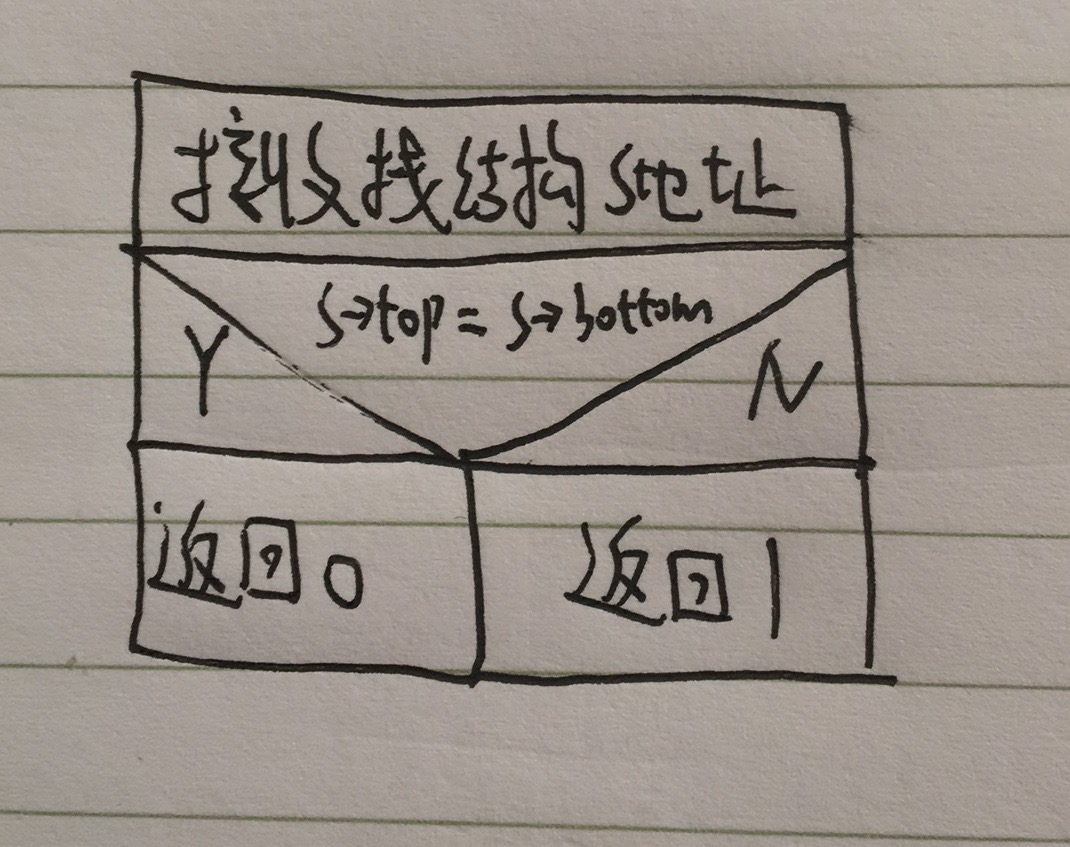 接收栈结构s地址
s→top = s→bottom
Y
N
返回0
返回1